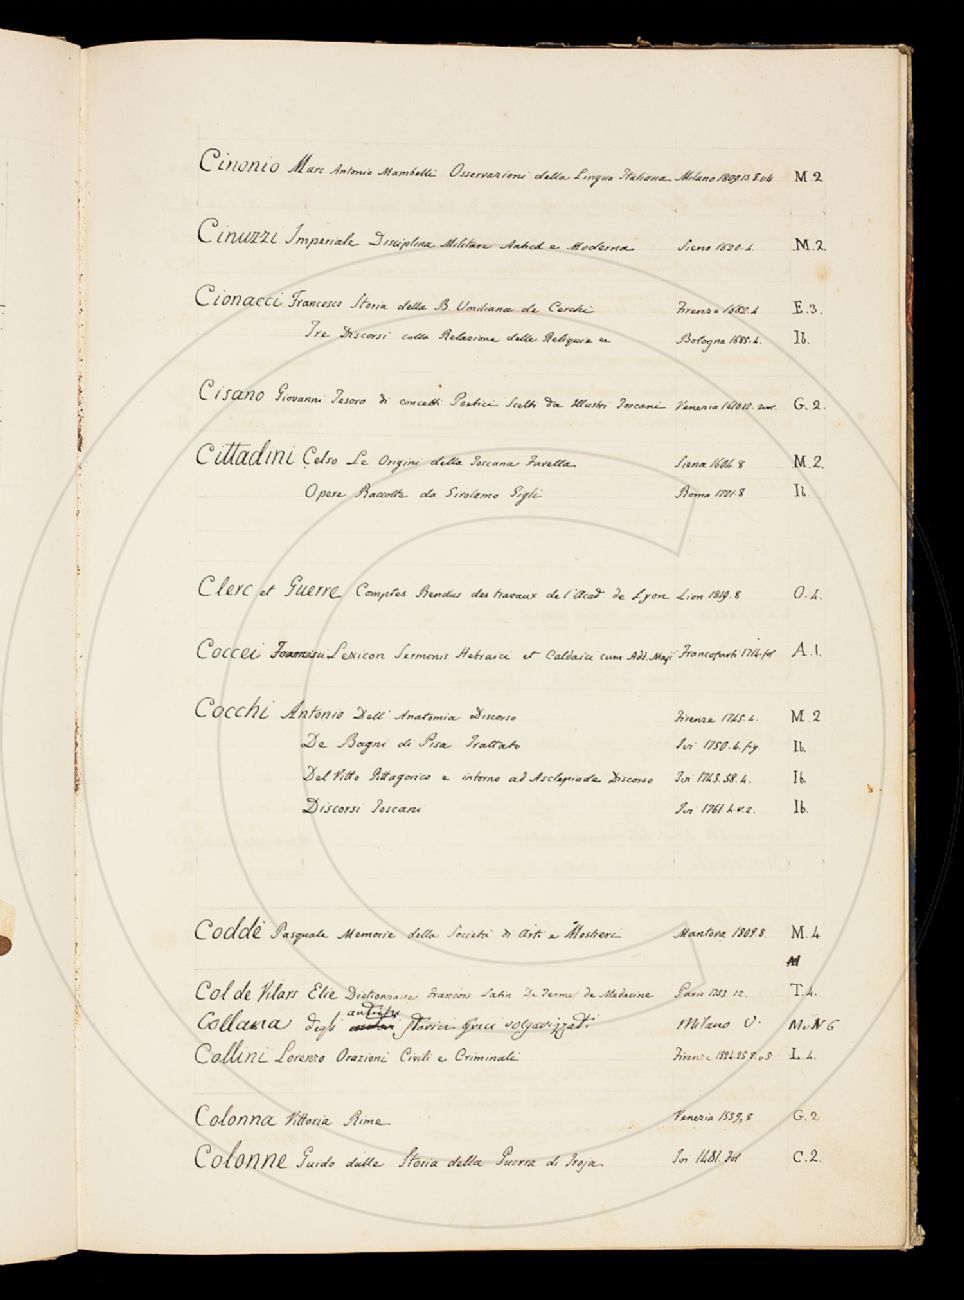 Cinonio Marc Antonio Mambelli Osservazioni della Lingua Italiana Milano 1809.13 8.v4 M.2
Cinuzzi Imperiale Disciplina Militare Antica e Moderna Siena 1620.4. M.2.
Cionacci Francesco Storia della B. Umiliana de Cerchi Firenze 1682.4 E.3.
Tre Discorsi colla Relazione delle Reliquie Bologna 1685.4. Ib.
Cisano Giovanni Tesoro di concetti Poetici Scelti da Illustri Toscani Venezia 1610 12. G.2.
Cittadini Celso Le Origini della Toscana Favella Siena 1604 8 M.2.
Opere Raccolte da Girolamo Gigli Roma 1721.8 Ib
Clerc et Guerre Comptes Rendus des travaux de l'Acad de Lyon Lion 1819.8 O.4.
Coccei Lexicon Sermonis Hebraici et Caldaici cum Adl. Maji Francofurti 1714.fol A.1.
Cocchi Antonio Dell' Anatomia Discorso Firenze 1745.4. M.2
De Bagni di Pisa Trattato Ivi 1750.4.fig. Ib.
Del Vitto Pittagorico e intorno ad Asclepiade Discorso Ivi 1743.58.4. Ib.
Discorsi Toscani Ivi 1761.4.v.2. Ib.
Coddè Pasquale Memorie della Società di Arti e Mestieri Mantova 1809.8. M.4
M
Col de Vilars Elie Dictionnaire François Latin De Terme de Medecine Paris 1753 12. T.4.
antichi
Collana degli storici greci volgarizzati Milano V. M.N 6
Collini Lorenzo Orazioni Civili e Criminali Firenze 1824.25 8.v5 L.4.
Colonna Vittoria Rime Venezia 1559,8 G.2
Colonne Guido dalle Storia della Guerra di Troja Ivi 1481.Fol C.2.